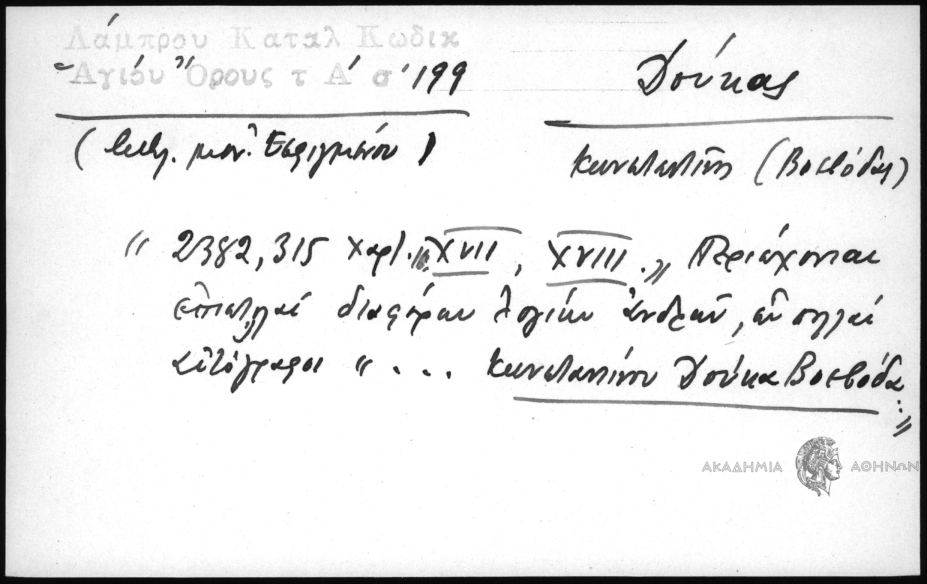 Λάμπρου Καταλ Κωδικ
Ἁγίου Ὄρους τ Α' σ' 199
Δούκας
( μον. Ἐσφιγμένου )
Κωνσταντίνος (Βοεβόδας)
" 2382, 315 χαρτ. XVII, XVIII. „ Περιέχονται
ἐπιστολαί διαφόρων λογίων ἀνδρῶν, ὧν πολλαί
αὐτόγραφοι " ... Κωνσταντίνου Δούκα Βοεβόδα..."
ΑΚΑΔΗΜΙΑ ΑΘΗΝΩΝ